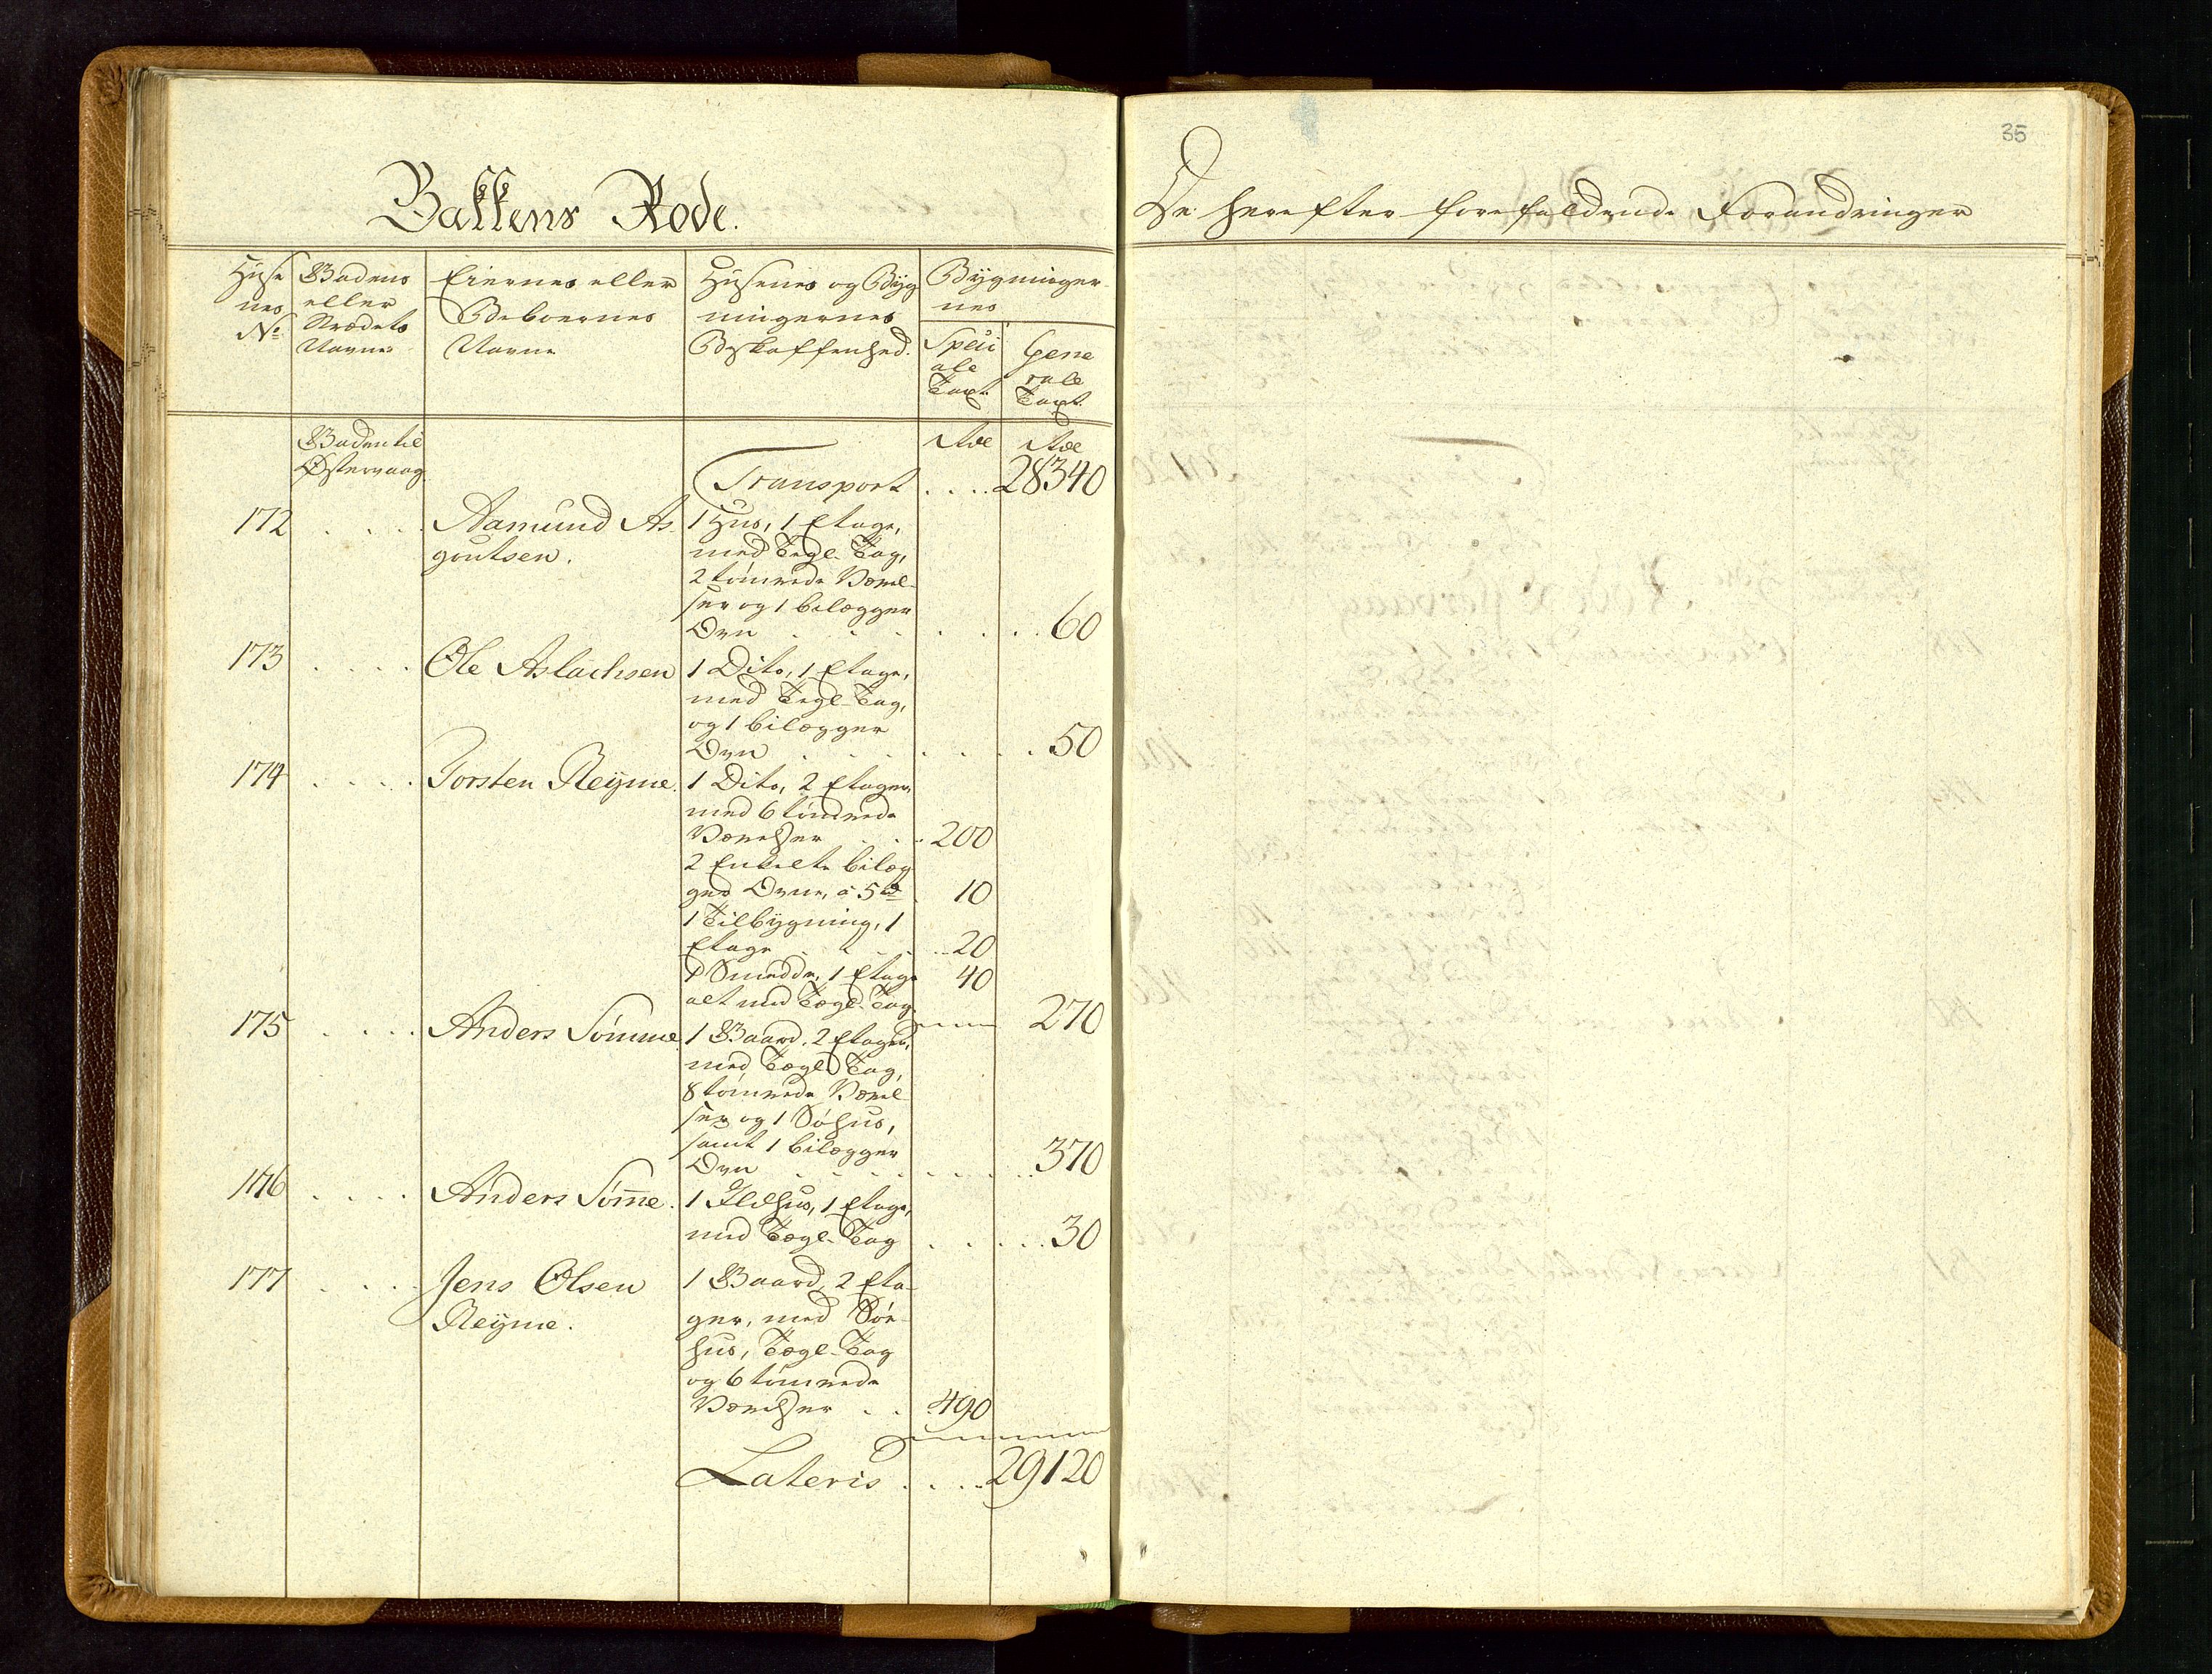 Bakkens Rode.
Huse
nes
No
Gadens
eller
Strædets
Navne
Eiernes eller
Beboernes
Navne
Husenes og Byg
ningernes
Beskaffenhed.
Bygninger
nes
Speci
ale
Taxt.
Gene
rale
Taxt.
Gaden til
Østervaag.
Rdl Rdl
Transport .... 28340
172 . . . . Aamund As-
goutsen.
1 Hus, 1 Etage,
med Tegl-Tag,
2 tømrede Værel-
ser og 1 bilægger
Ovn . . . . . . . 60
173 . . . . Ole Aslachsen
1 Dito, 1 Etage,
med Tegl-Tag,
og 1 bilægger
Ovn . . . . . . 50
174 . . . . Torsten Reyme.
1 Dito, 2 Etager,
med 6 tømrede
Værelser . . . 200
2 Enkelte bilæg
ger Ovne, a 5 rd 10
1 Tilbygning, 1
Etage . . . . 20
1 Smedde, 1 Etage 40
alt med Tægl-Tag
270
175 . . . . Anders Sømme.
1 Gaard, 2 Etager,
med Tægl-Tag,
8 tømrede Værel-
ser og 1 Søhus,
samt 1 bilægger
Ovn . . . . . . . 370
176 . . . . Anders Som̅e.
1 Ildhus, 1 Etage,
med Tægl-Tag . . . . . 30
177 . . . . Jens Olsen
Reyme.
1 Gaard, 2 Eta-
ger, med Søe-
hus, Tægl-Tag
og 6 tømrede
Værelser . . . 490
Lateris .... 29120
35
De herefter forefaldende Forandringer